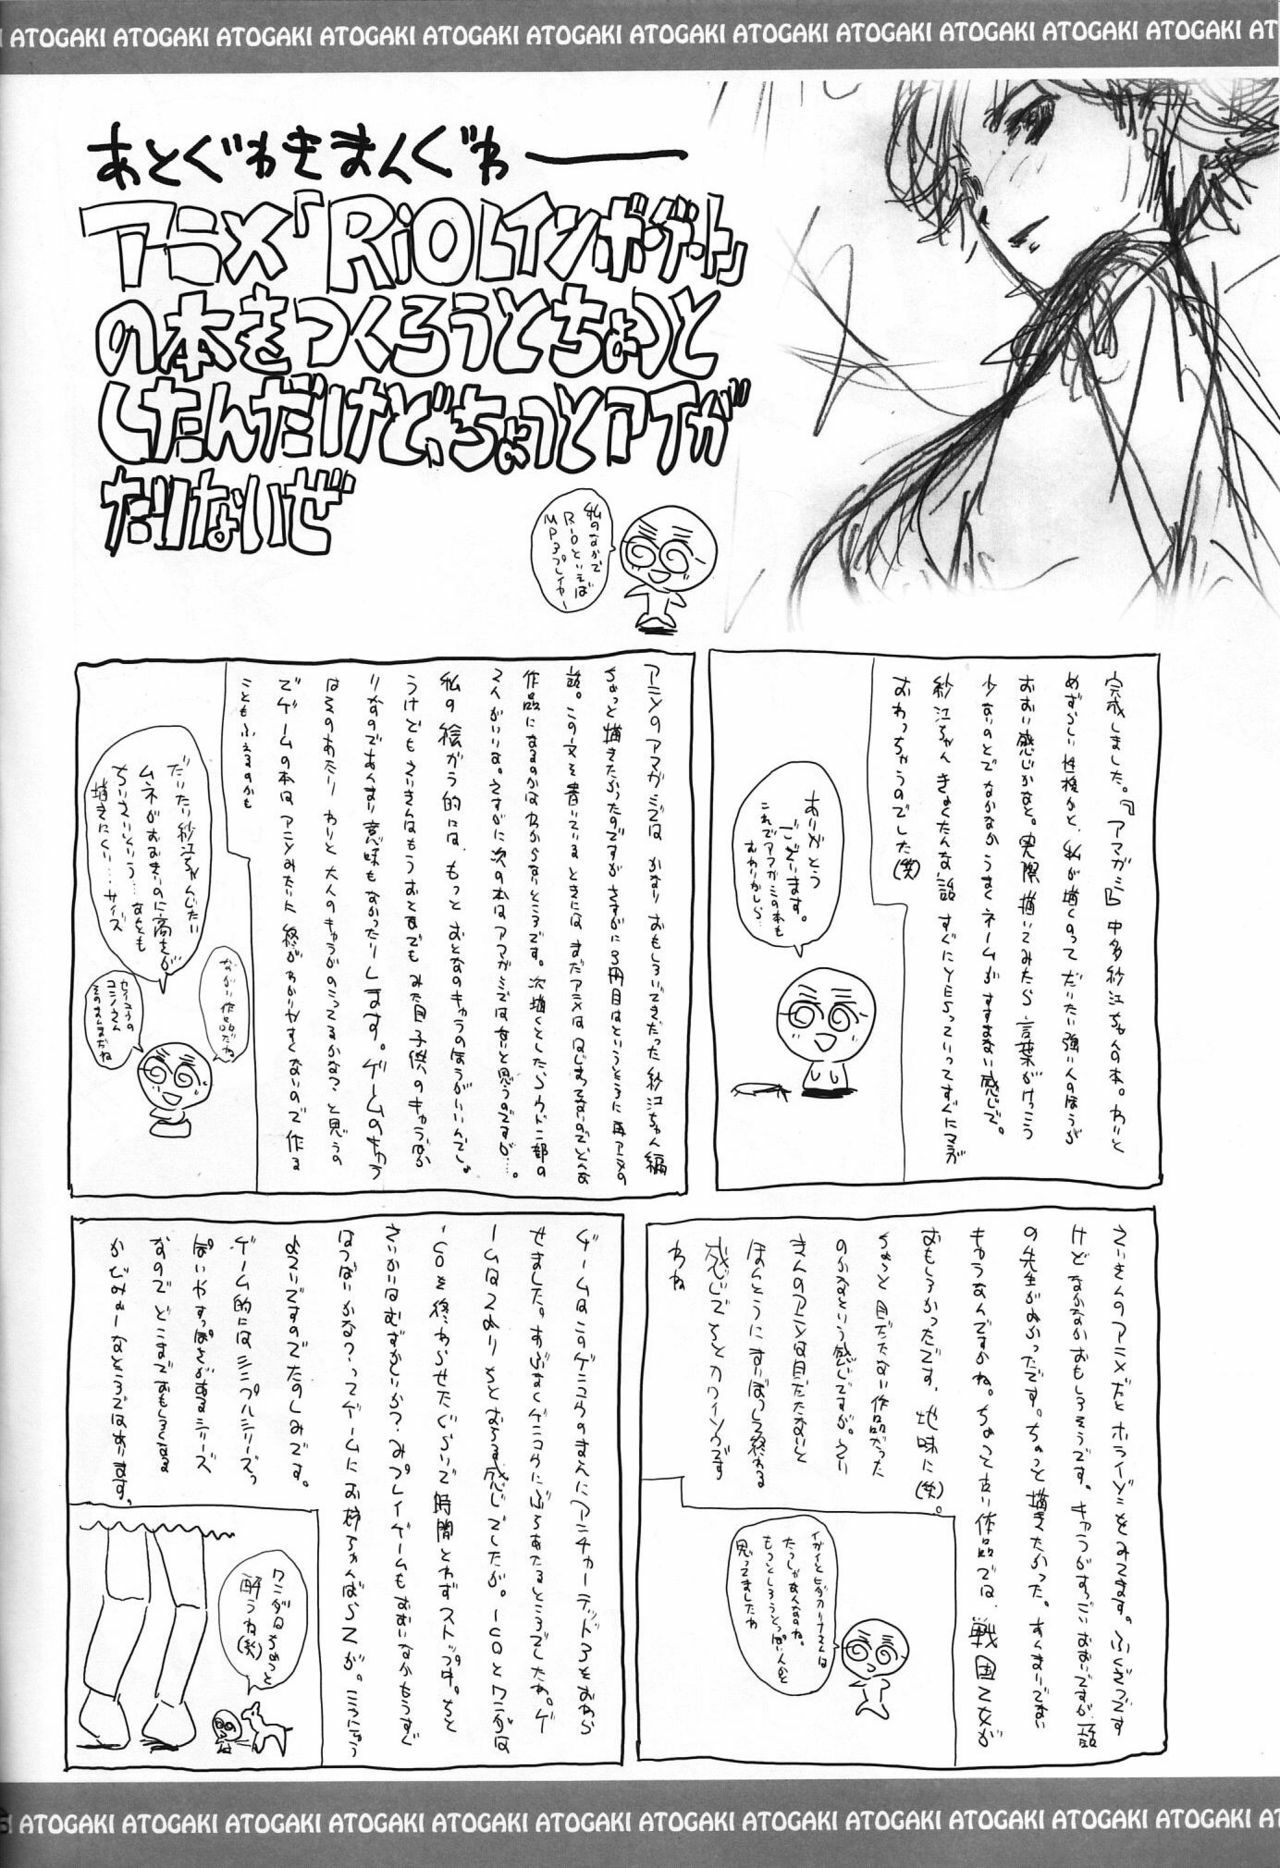 ATOGAKI ATOGAKI ATOGAKI ATOGAKI ATOGAKI ATOGAKI ATOGAKI ATOGAKI ATOGAKI ATOGAKI ATOGAKI ATOGAKI AT
あとぐわきまんぐわ――
アニメ「RiOレインボーゲート」
の本をつくろうとちょっと
したんだけど、ちょっとアイが
たりないぜ
私のなかで
Rioといえば
MP3プレイヤー
完成しました。『アマガミ』中多紗江ちゃんの本。わりと
めずらしい性格かと、私が描くのって だいたい強い人のほうが
おおい感じかなと。実際 描いてみたら 言葉がけっこう
少ないのとでなかなかうまくネームがすすまない感じで。
紗江ちゃん きょくたんな話 すぐにYESっていってすぐにマンガ
おわっちゃうのでした(笑)
ありがとう
ございます。
これでアマガミの本も
おわりかしら…
アニメのアマガミでは かなり おもしろいできだった 紗江ちゃん編
ちょっと描きたかったのですが さすがに3冊目はというところに再アニメの
話。この文を書いているときには まだアニメは はじまってないのでどんな
作品になるのかはわからないところです。次描くとしたらウドン二部の
2人がいいな。さすがに次の本はアマガミではないと思うのですが…。
私の絵がら的には、もっと おとなのキャラのほうがいいんでしょ
うけども
りなのであんまり意味もなかったりします。ゲームのキャラ
はそのあたり わりと 大人のキャラがのこってるかなって と思うの
でゲームの本は アニメみたいに 終がわかりやすくないので 作る
こともふえるのかも
だいたい紗江ちゃんみたい
ムネがおおきいのに 高さが
ちいさいという… なんとも
描きにくい…サイズ
ながい作品だね
そのまんまだね
さいきんのアニメだとホライゾンをみてます。ふくざつです
けどなかなかおもしろそうです。キャラがすっごいおおいですが、話
の先生がめかったです。ちょっと描きたかった。すんまりでない
キャラなんですかね。ちょっと古い作品では、戦国乙女が
おもしろかったです、地味に(笑)。
ちょっと目だたない作品だった
のかなという感じですが。さい
きんのアニメは目だたないと
ほんとうにすりぼっしで終わる
感じでちとカワイソウです
わね
もっとしろうとっぽい人かと
思ってましたわ
ゲームはこのゲンコウのまえにアンチャーテッド3をおわら
せました。あぶなくゲンコウにぶちあたるところでしたわ。ゲ
ームは2ありちとおちる感じでしたが。ICOとワンダは
ICOを終わらせたぐらいで時間とれずストップ中。ちと
さいかいはむずかしいか？みプレイゲームもおおいなかもうすぐ
はつばいかなってゲームにお姉ちゃんばらZが。こうにゅう
よていですのでたのしみです。
ゲーム的にはシンプルシリーズっ
ぽいやすっぽさがあるシリーズ
なのでどこまでおもしろくなる
かびみょーなところではあります。
ワンダはちょっと
酔うね(笑)
ATOGAKI ATOGAKI ATOGAKI ATOGAKI ATOGAKI ATOGAKI ATOGAKI ATOGAKI ATOGAKI ATOGAKI ATOGAKI